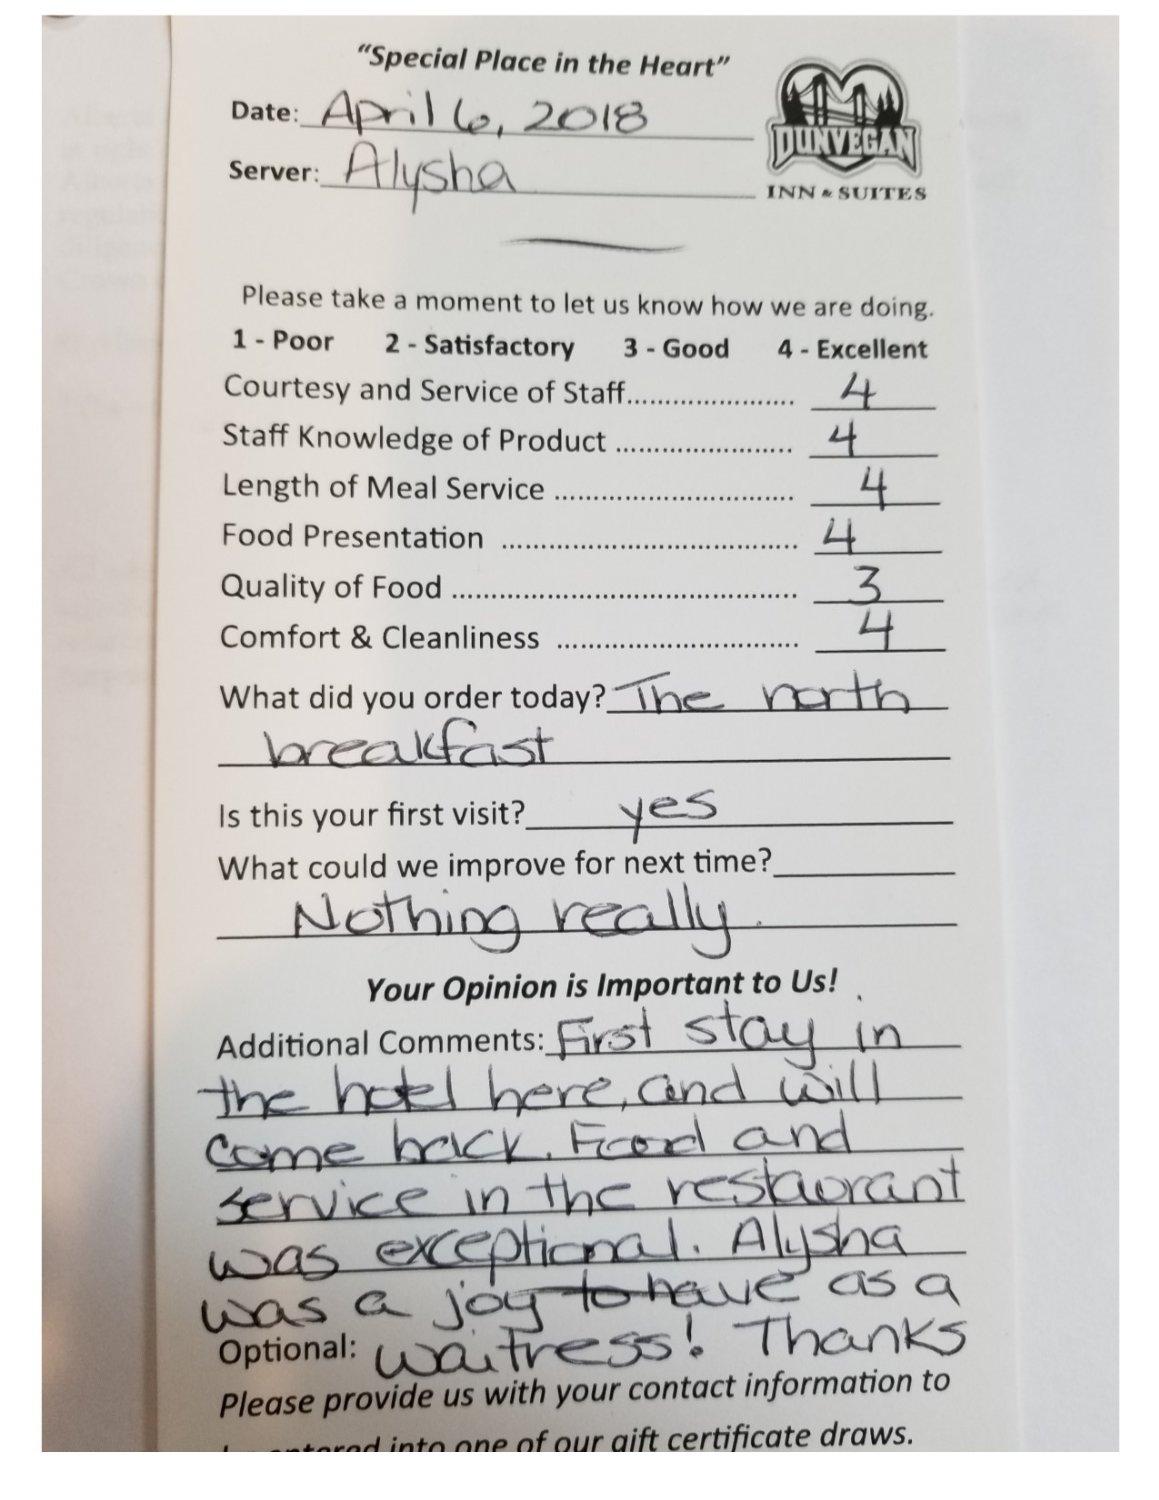 "Special Place in the Heart"
Date: April 6, 2018
DUNVEGAN
INN & SUITES
Server: Alysha
Please take a moment to let us know how we are doing.
1 - Poor 2 - Satisfactory 3 - Good 4 - Excellent
Courtesy and Service of Staff...................... 4
Staff Knowledge of Product ....................... 4
Length of Meal Service ............................... 4
Food Presentation ....................................... 4
Quality of Food ............................................. 3
Comfort & Cleanliness ................................ 4
What did you order today? The north
breakfast
Is this your first visit? yes
What could we improve for next time?
Nothing really.
Your Opinion is Important to Us!
Additional Comments: First stay in
the hotel here, and will
come back. Food and
service in the restaurant
was exceptional. Alysha
was a joy to have as a
Optional: waitress! Thanks
Please provide us with your contact information to
entered into one of our gift certificate draws.